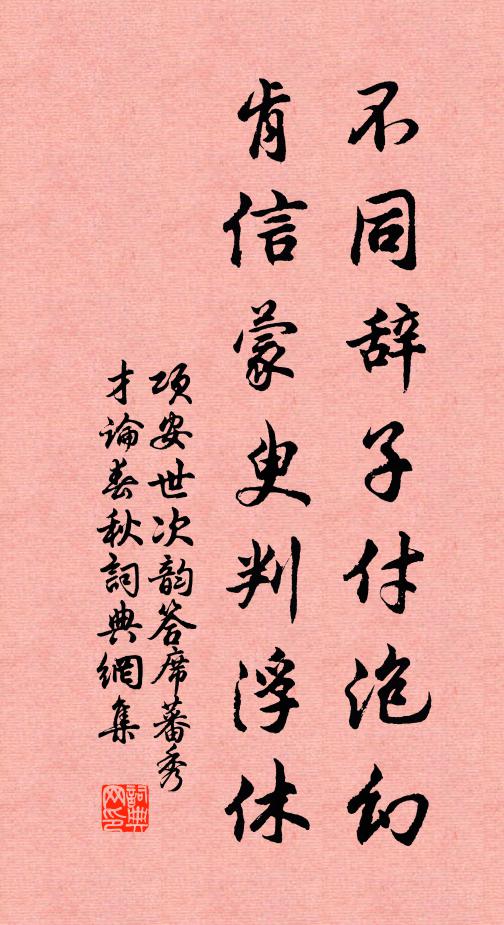 不同辞子付泡幻
肯信蒙叟判浮休
项安世次韵答席蕃秀
才論春秋詞典網集
詞典网印